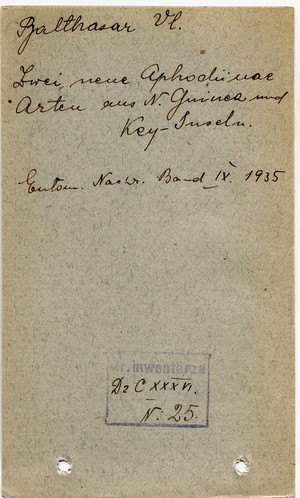 Balthasar Vl.
Zwei neue Aphodiinae
Arten aus N. Guinea und
Key-Inseln.
Entom. Nachr. Band IX. 1935
Nr. inwentarza
Dz C XXXVI.
N. 25.